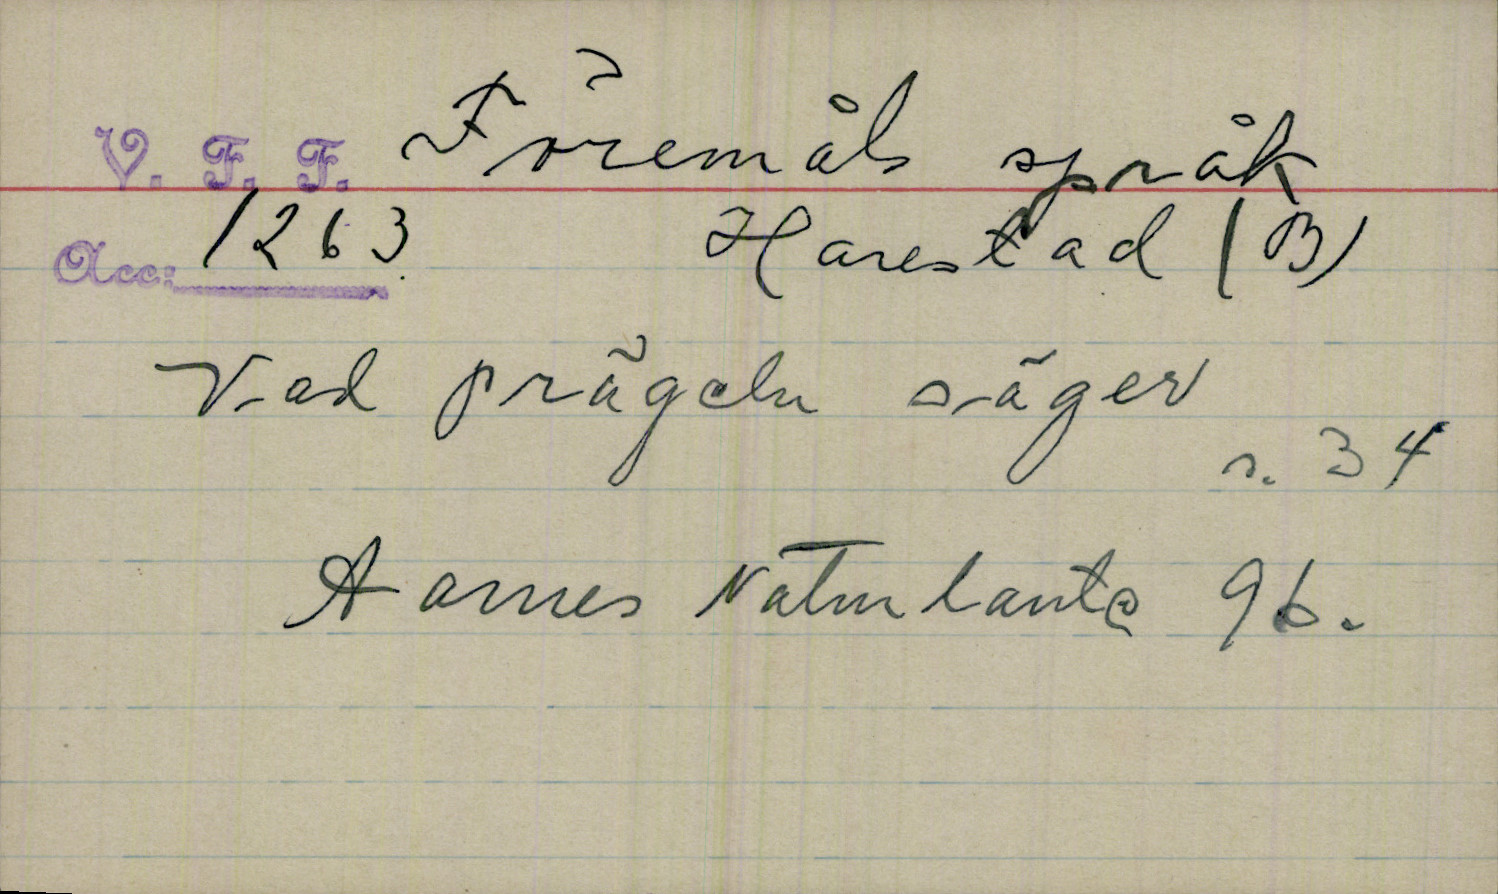 V. F. F. Föremåls språk
Acc: 1263 Harestad (B)
Vad prägeln säger
s. 34
Aarnes Naturlaute 96.